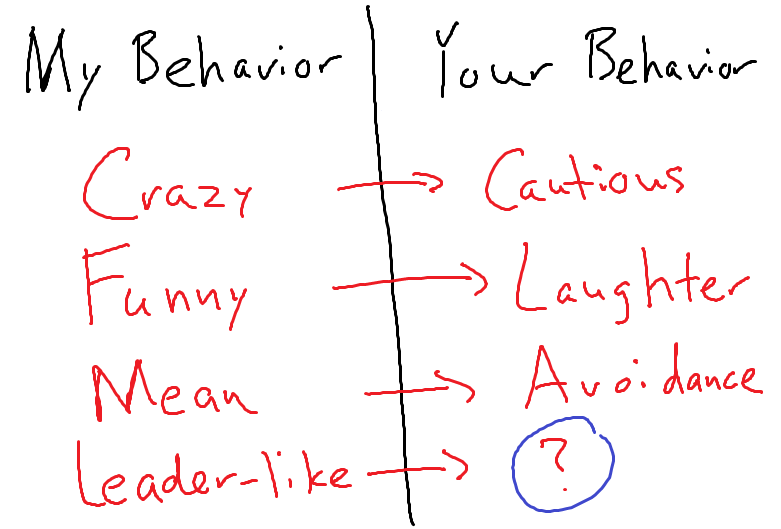 My Behavior Your Behavior
Crazy → Cautious
Funny → Laughter
Mean → Avoidance
Leader-like → ?